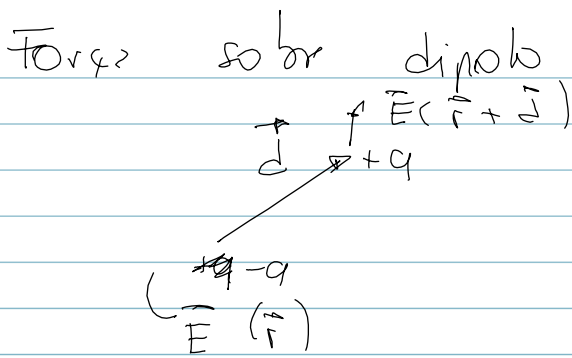 Força sobre dipolo
d⃗ E⃗(r⃗ + d⃗)
+q
-q
E⃗ (r⃗)